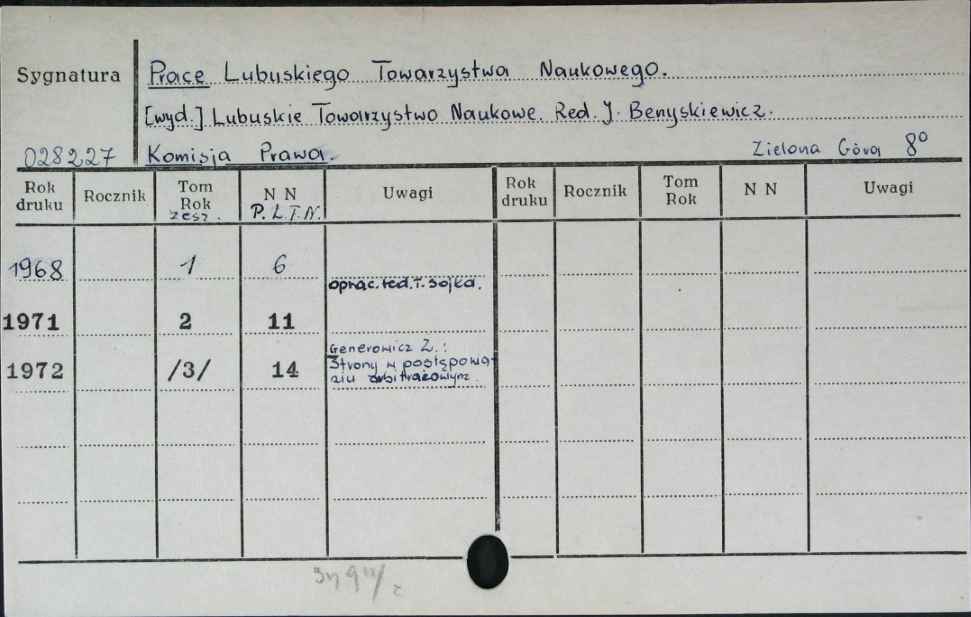 Sygnatura Prace Lubuskiego Towarzystwa Naukowego.
[wyd.] Lubuskie Towarzystwo Naukowe. Red. J. Benyskiewicz.
028227 Komisja Prawa. Zielona Góra 8º
Rok druku Rocznik Tom Rok zesz. N N P.L.T.N. Uwagi Rok druku Rocznik Tom Rok N N Uwagi
1968 1 6
oprac. red. T. Sojka.
1971 2 11
Generowicz Z.:
1972 /3/ 14 Strony w postępowa-
niu arbitrażowym.